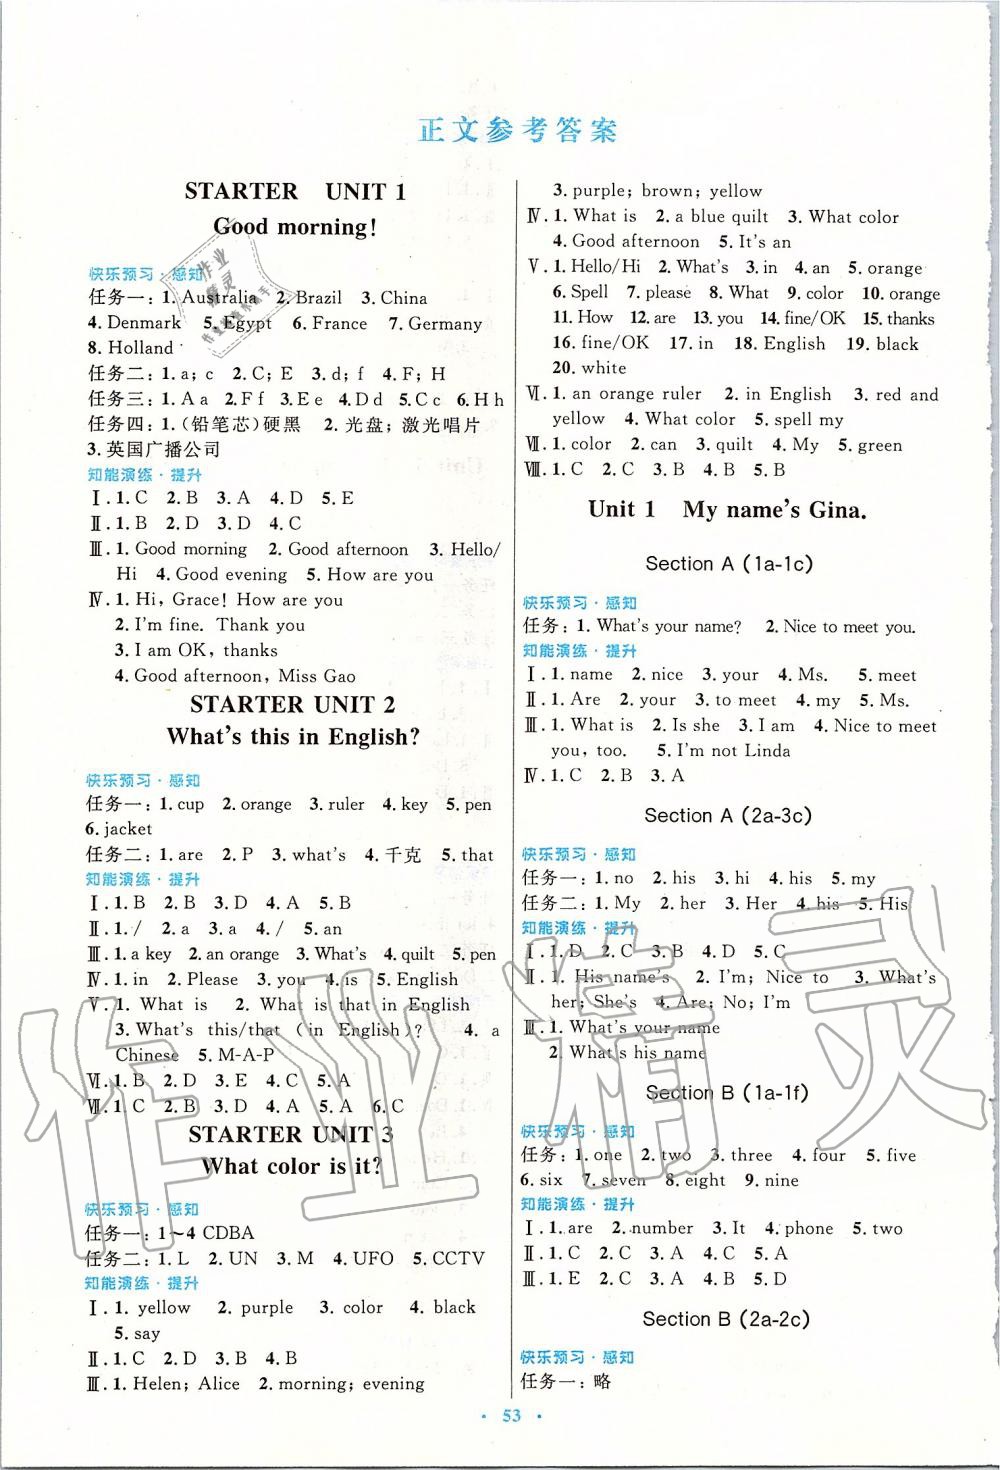 正文参考答案
STARTER UNIT 1
Good morning!
快乐预习·感知
任务一：1. Australia 2. Brazil 3. China
4. Denmark 5. Egypt 6. France 7. Germany
8. Holland
任务二：1. a; c 2. C; E 3. d; f 4. F; H
任务三：1. A a 2. F f 3. E e 4. D d 5. C c 6. H h
任务四：1.（铅笔芯）硬黑 2. 光盘；激光唱片
3. 英国广播公司
知能演练·提升
Ⅰ. 1. C 2. B 3. A 4. D 5. E
Ⅱ. 1. B 2. D 3. D 4. C
Ⅲ. 1. Good morning 2. Good afternoon 3. Hello/
Hi 4. Good evening 5. How are you
Ⅳ. 1. Hi, Grace! How are you
2. I'm fine. Thank you
3. I am OK, thanks
4. Good afternoon, Miss Gao
STARTER UNIT 2
What's this in English?
快乐预习·感知
任务一：1. cup 2. orange 3. ruler 4. key 5. pen
6. jacket
任务二：1. are 2. P 3. what's 4. 千克 5. that
知能演练·提升
Ⅰ. 1. B 2. B 3. D 4. A 5. B
Ⅱ. 1. / 2. a 3. a 4. / 5. an
Ⅲ. 1. a key 2. an orange 3. What's 4. quilt 5. pen
Ⅳ. 1. in 2. Please 3. you 4. is 5. English
Ⅴ. 1. What is 2. What is that in English
3. What's this/that (in English)? 4. a
Chinese 5. M-A-P
Ⅵ. 1. B 2. D 3. E 4. C 5. A
Ⅶ. 1. C 2. B 3. D 4. A 5. A 6. C
STARTER UNIT 3
What color is it?
快乐预习·感知
任务一：1～4 CDBA
任务二：1. L 2. UN 3. M 4. UFO 5. CCTV
知能演练·提升
Ⅰ. 1. yellow 2. purple 3. color 4. black
5. say
Ⅱ. 1. C 2. D 3. B 4. B
Ⅲ. 1. Helen; Alice 2. morning; evening
3. purple; brown; yellow
Ⅳ. 1. What is 2. a blue quilt 3. What color
4. Good afternoon 5. It's an
Ⅴ. 1. Hello/Hi 2. What's 3. in 4. an 5. orange
6. Spell 7. please 8. What 9. color 10. orange
11. How 12. are 13. you 14. fine/OK 15. thanks
16. fine/OK 17. in 18. English 19. black
20. white
Ⅵ. 1. an orange ruler 2. in English 3. red and
yellow 4. What color 5. spell my
Ⅶ. 1. color 2. can 3. quilt 4. My 5. green
Ⅷ. 1. C 2. C 3. B 4. B 5. B
Unit 1 My name's Gina.
Section A (1a-1c)
快乐预习·感知
任务：1. What's your name? 2. Nice to meet you.
知能演练·提升
Ⅰ. 1. name 2. nice 3. your 4. Ms. 5. meet
Ⅱ. 1. Are 2. your 3. to meet 4. my 5. Ms.
Ⅲ. 1. What is 2. Is she 3. I am 4. Nice to meet
you, too. 5. I'm not Linda
Ⅳ. 1. C 2. B 3. A
Section A (2a-3c)
快乐预习·感知
任务一：1. no 2. his 3. hi 4. his 5. my
任务二：1. My 2. her 3. Her 4. his 5. His
知能演练·提升
Ⅰ. 1. D 2. C 3. B 4. D 5. C
Ⅱ. 1. His name's 2. I'm; Nice to 3. What's
her; She's 4. Are; No; I'm
Ⅲ. 1. What's your name
2. What's his name
Section B (1a-1f)
快乐预习·感知
任务：1. one 2. two 3. three 4. four 5. five
6. six 7. seven 8. eight 9. nine
知能演练·提升
Ⅰ. 1. are 2. number 3. It 4. phone 5. two
Ⅱ. 1. C 2. C 3. D 4. A 5. A
Ⅲ. 1. E 2. C 3. A 4. B 5. D
Section B (2a-2c)
快乐预习·感知
任务一：略
· 53 ·
作业精灵